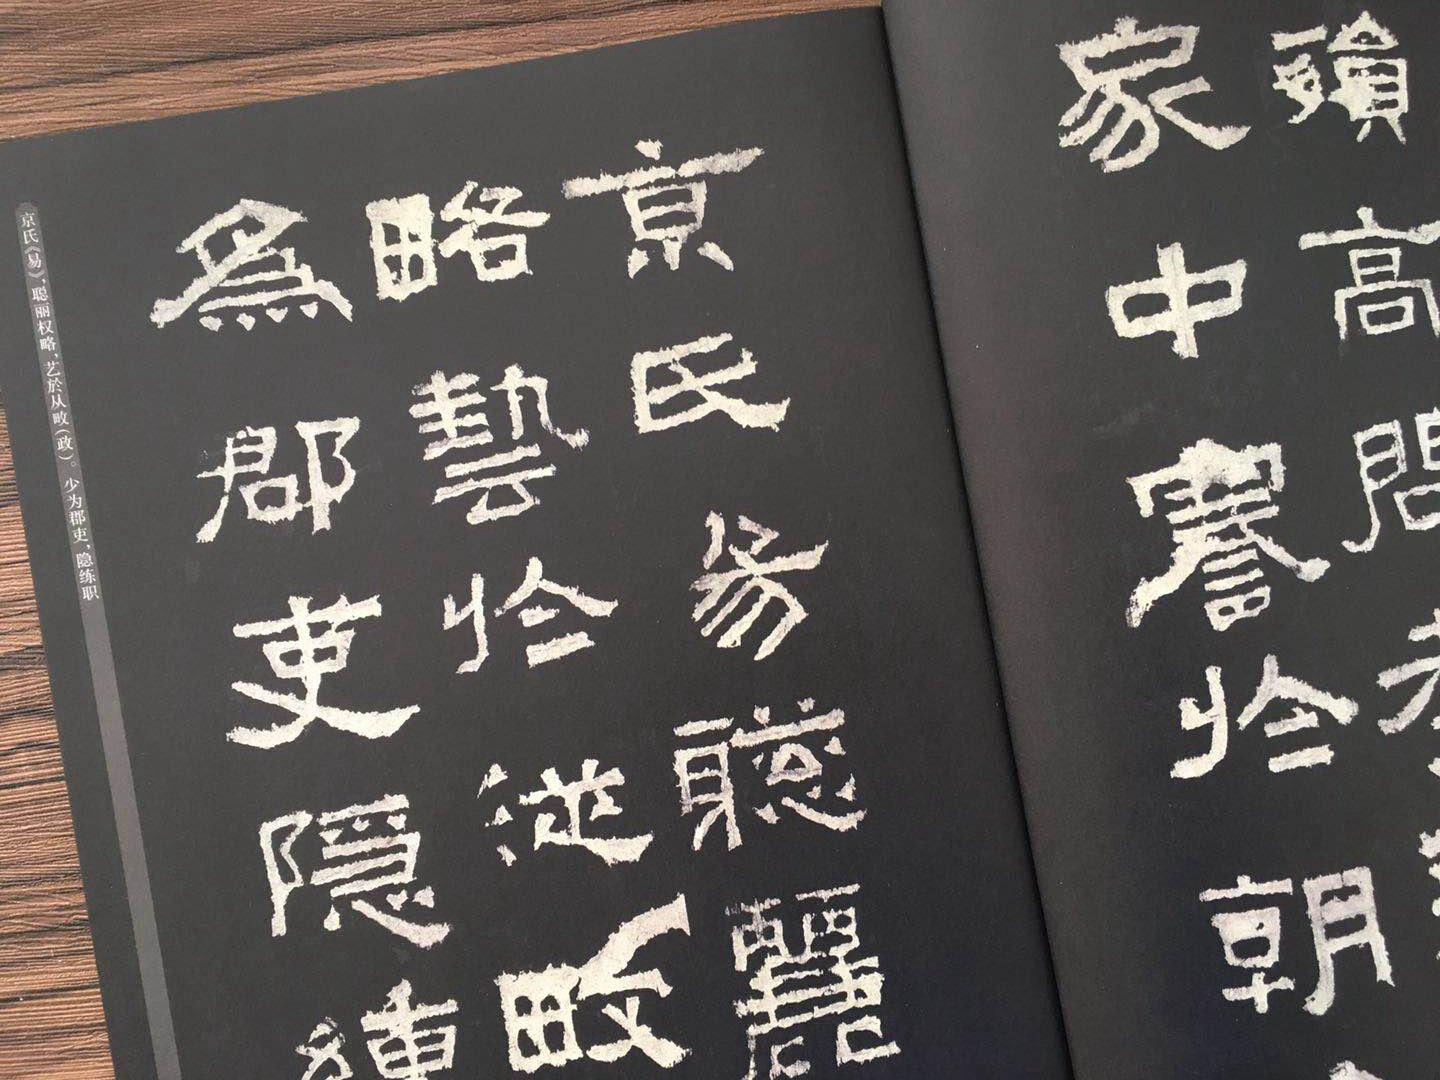 殞高問孝
家中謇於朝
京氏易聰麗
略藝於從畋
為郡吏隱練
京氏《易》，聪丽权略，艺於从畋（政）。少为郡吏，隐练职